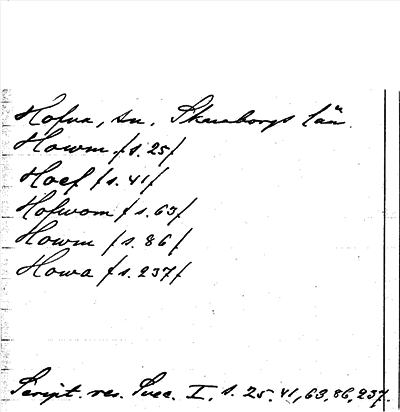 Hofva, sn, Skaraborgs län.
Howm /s. 25/
Hoef /s. 41/
Hofwom /s. 63/
Howm /s. 86/
Howa /s. 237/
Script. rer. Svec. I, s. 25, 41, 63, 86, 237.